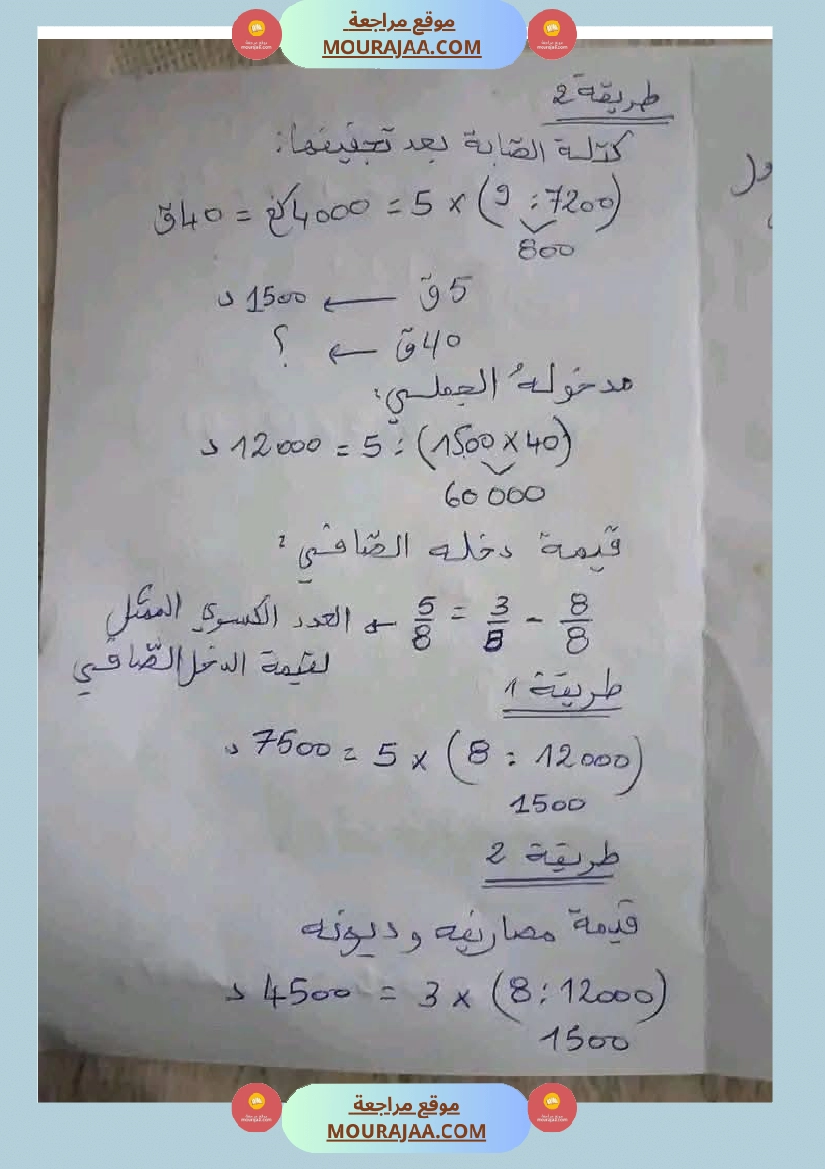 موقع مراجعة
MOURAJAA.COM
طريقة 2
كتلة الصّابة بعد تجفيفها:
(7200 : 9) × 5 = 4000 كغ = 40 ق
800
5 ق ← 1500 د
40 ق ← ؟
مدخوله الجملي:
(40 × 1500) : 5 = 12000 د
60 000
قيمة دخله الصّافي:
8/8 - 3/8 = 5/8 ← العدد الكسري الممثّل
لقيمة الدخل الصّافي
طريقة 1
(12000 : 8) × 5 = 7500 د
1500
طريقة 2
قيمة مصاريفه وديونه
(12000 : 8) × 3 = 4500 د
1500
موقع مراجعة
MOURAJAA.COM